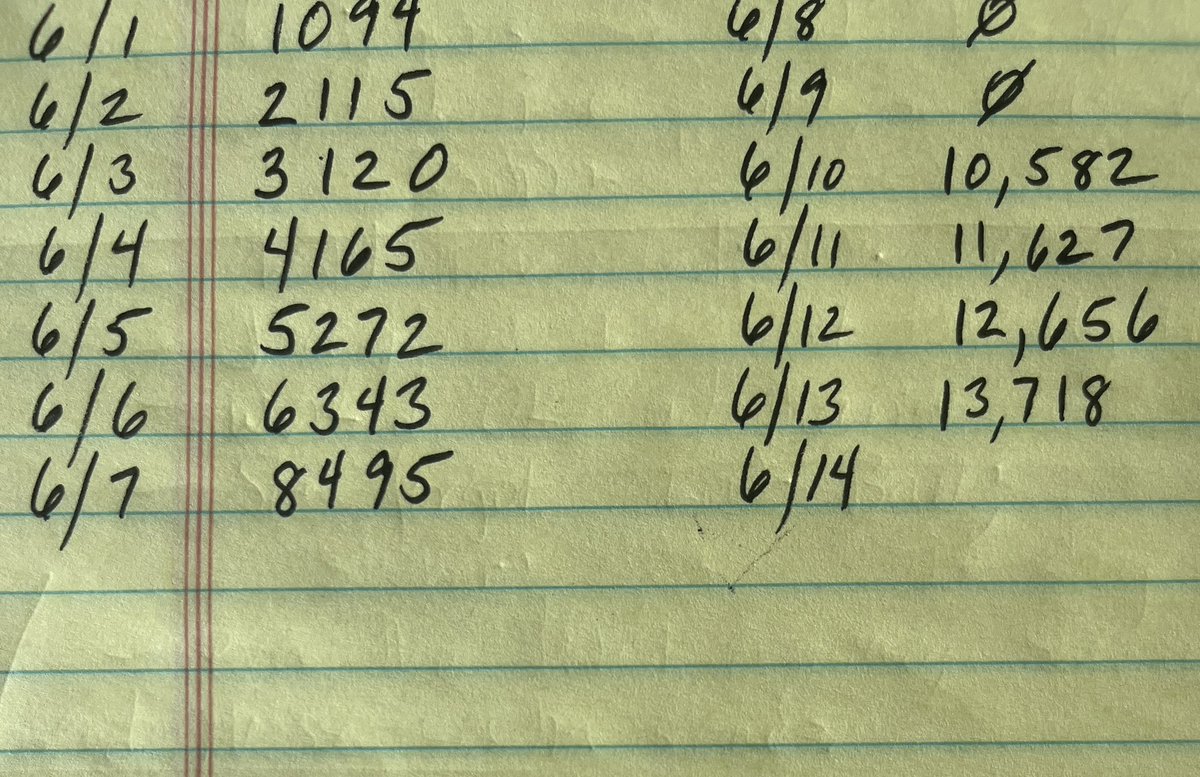 6/1 1094 6/8 Ø
6/2 2115 6/9 Ø
6/3 3120 6/10 10,582
6/4 4165 6/11 11,627
6/5 5272 6/12 12,656
6/6 6343 6/13 13,718
6/7 8495 6/14